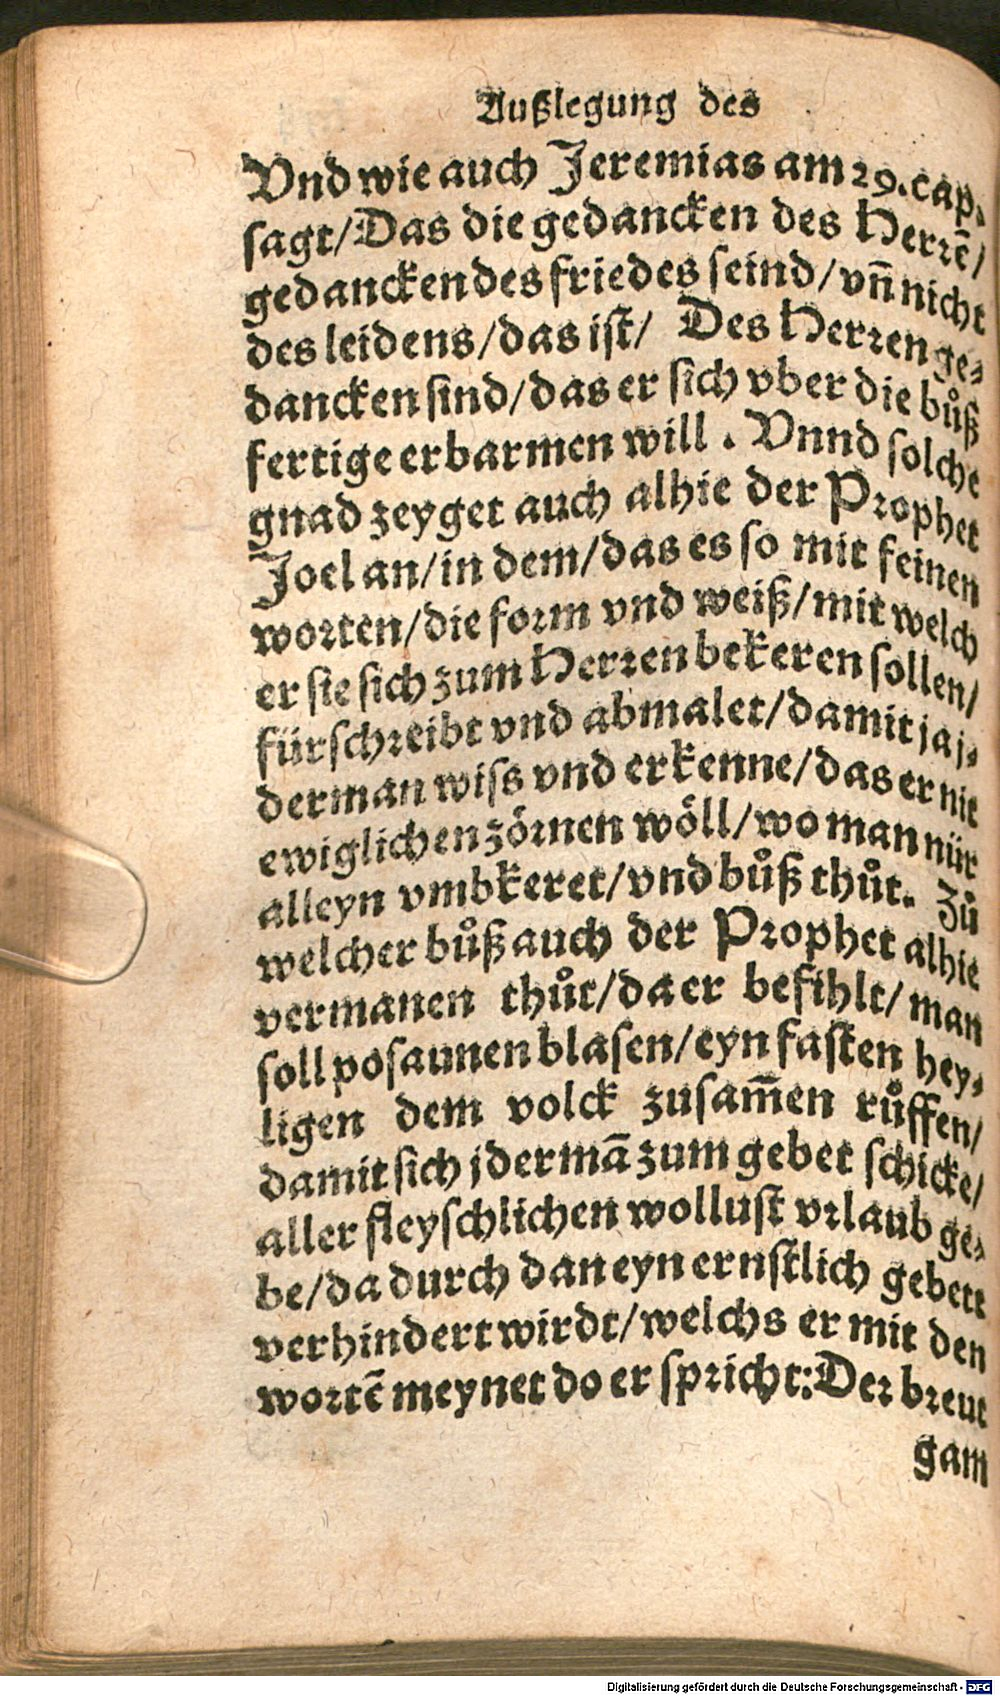 Außlegung des
Vnd wie auch Jeremias am 29. cap.
sagt/Das die gedancken des Herrē/
gedancken des friedes seind/vñ nicht
des leidens/das ist/ Des Herren ge⸗
dancken sind/das er sich vber die bůß
fertige erbarmen will. Vnnd solche
gnad zeyget auch alhie der Prophet
Joel an/in dem/das es so mit feinen
worten/die form vnd weiß/mit welch
er sie sich zum Herren bekeren sollen/
fürschreibt vnd abmalet/damit jaj⸗
derman wiss vnd erkenne/das er nit
ewiglichen zörnen wöll/wo man nür
alleyn vmbkeret/vnd bůß thůt. Zů
welcher bůß auch der Prophet alhie
vermanen thůt/da er befihlt/man
soll posaunen blasen/eyn fasten hey⸗
ligen dem volck zusam̄en růffen/
damit sich jdermā zum gebet schicke/
aller fleyschlichen wollust vrlaub ge⸗
be/da durch dan eyn ernstlich gebett
verhindert wirdt/welchs er mit den
wortē meynet do er spricht:Der breut
gam
Digitalisierung gefördert durch die Deutsche Forschungsgemeinschaft - DFG